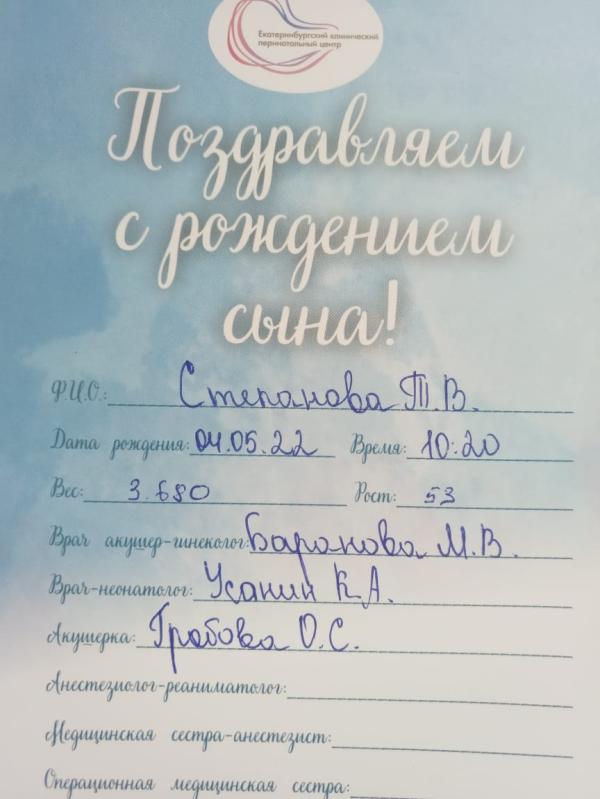 Екатеринбургский клинический
перинатальный центр
Поздравляем
с рождением
сына!
Ф.И.О.: Степанова Т.В.
Дата рождения: 04.05.22 Время: 10:20
Вес: 3.680 Рост: 53
Врач акушер-гинеколог: Баранова М.В.
Врач-неонатолог: Усанин К.А.
Акушерка: Грабова О.С.
Анестезиолог-реаниматолог:
Медицинская сестра-анестезист:
Операционная медицинская сестра: